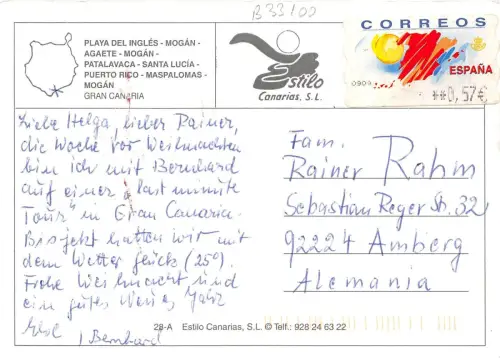 B33/00
PLAYA DEL INGLÉS - MOGÁN -
AGAETE - MOGÁN -
PATALAVACA - SANTA LUCÍA -
PUERTO RICO - MASPALOMAS -
MOGÁN
GRAN CANARIA
Estilo
Canarias, S.L.
CORREOS
ESPAÑA
0909
**0,57€
Liebe Helga, lieber Rainer,
die Woche vor Weihnachten
bin ich mit Bernhard
auf einer "last minute
Tour" in Gran Canaria.
Bis jetzt hatten wir mit
dem Wetter Glück (25°)
Frohe Weihnacht, und
ein gutes Neues Jahr
/ Bernhard
Fam.
Rainer Rahm
Sebastian Reger Str. 32
92224 Amberg
Alemania
28-A Estilo Canarias, S.L. © Telf.: 928 24 63 22